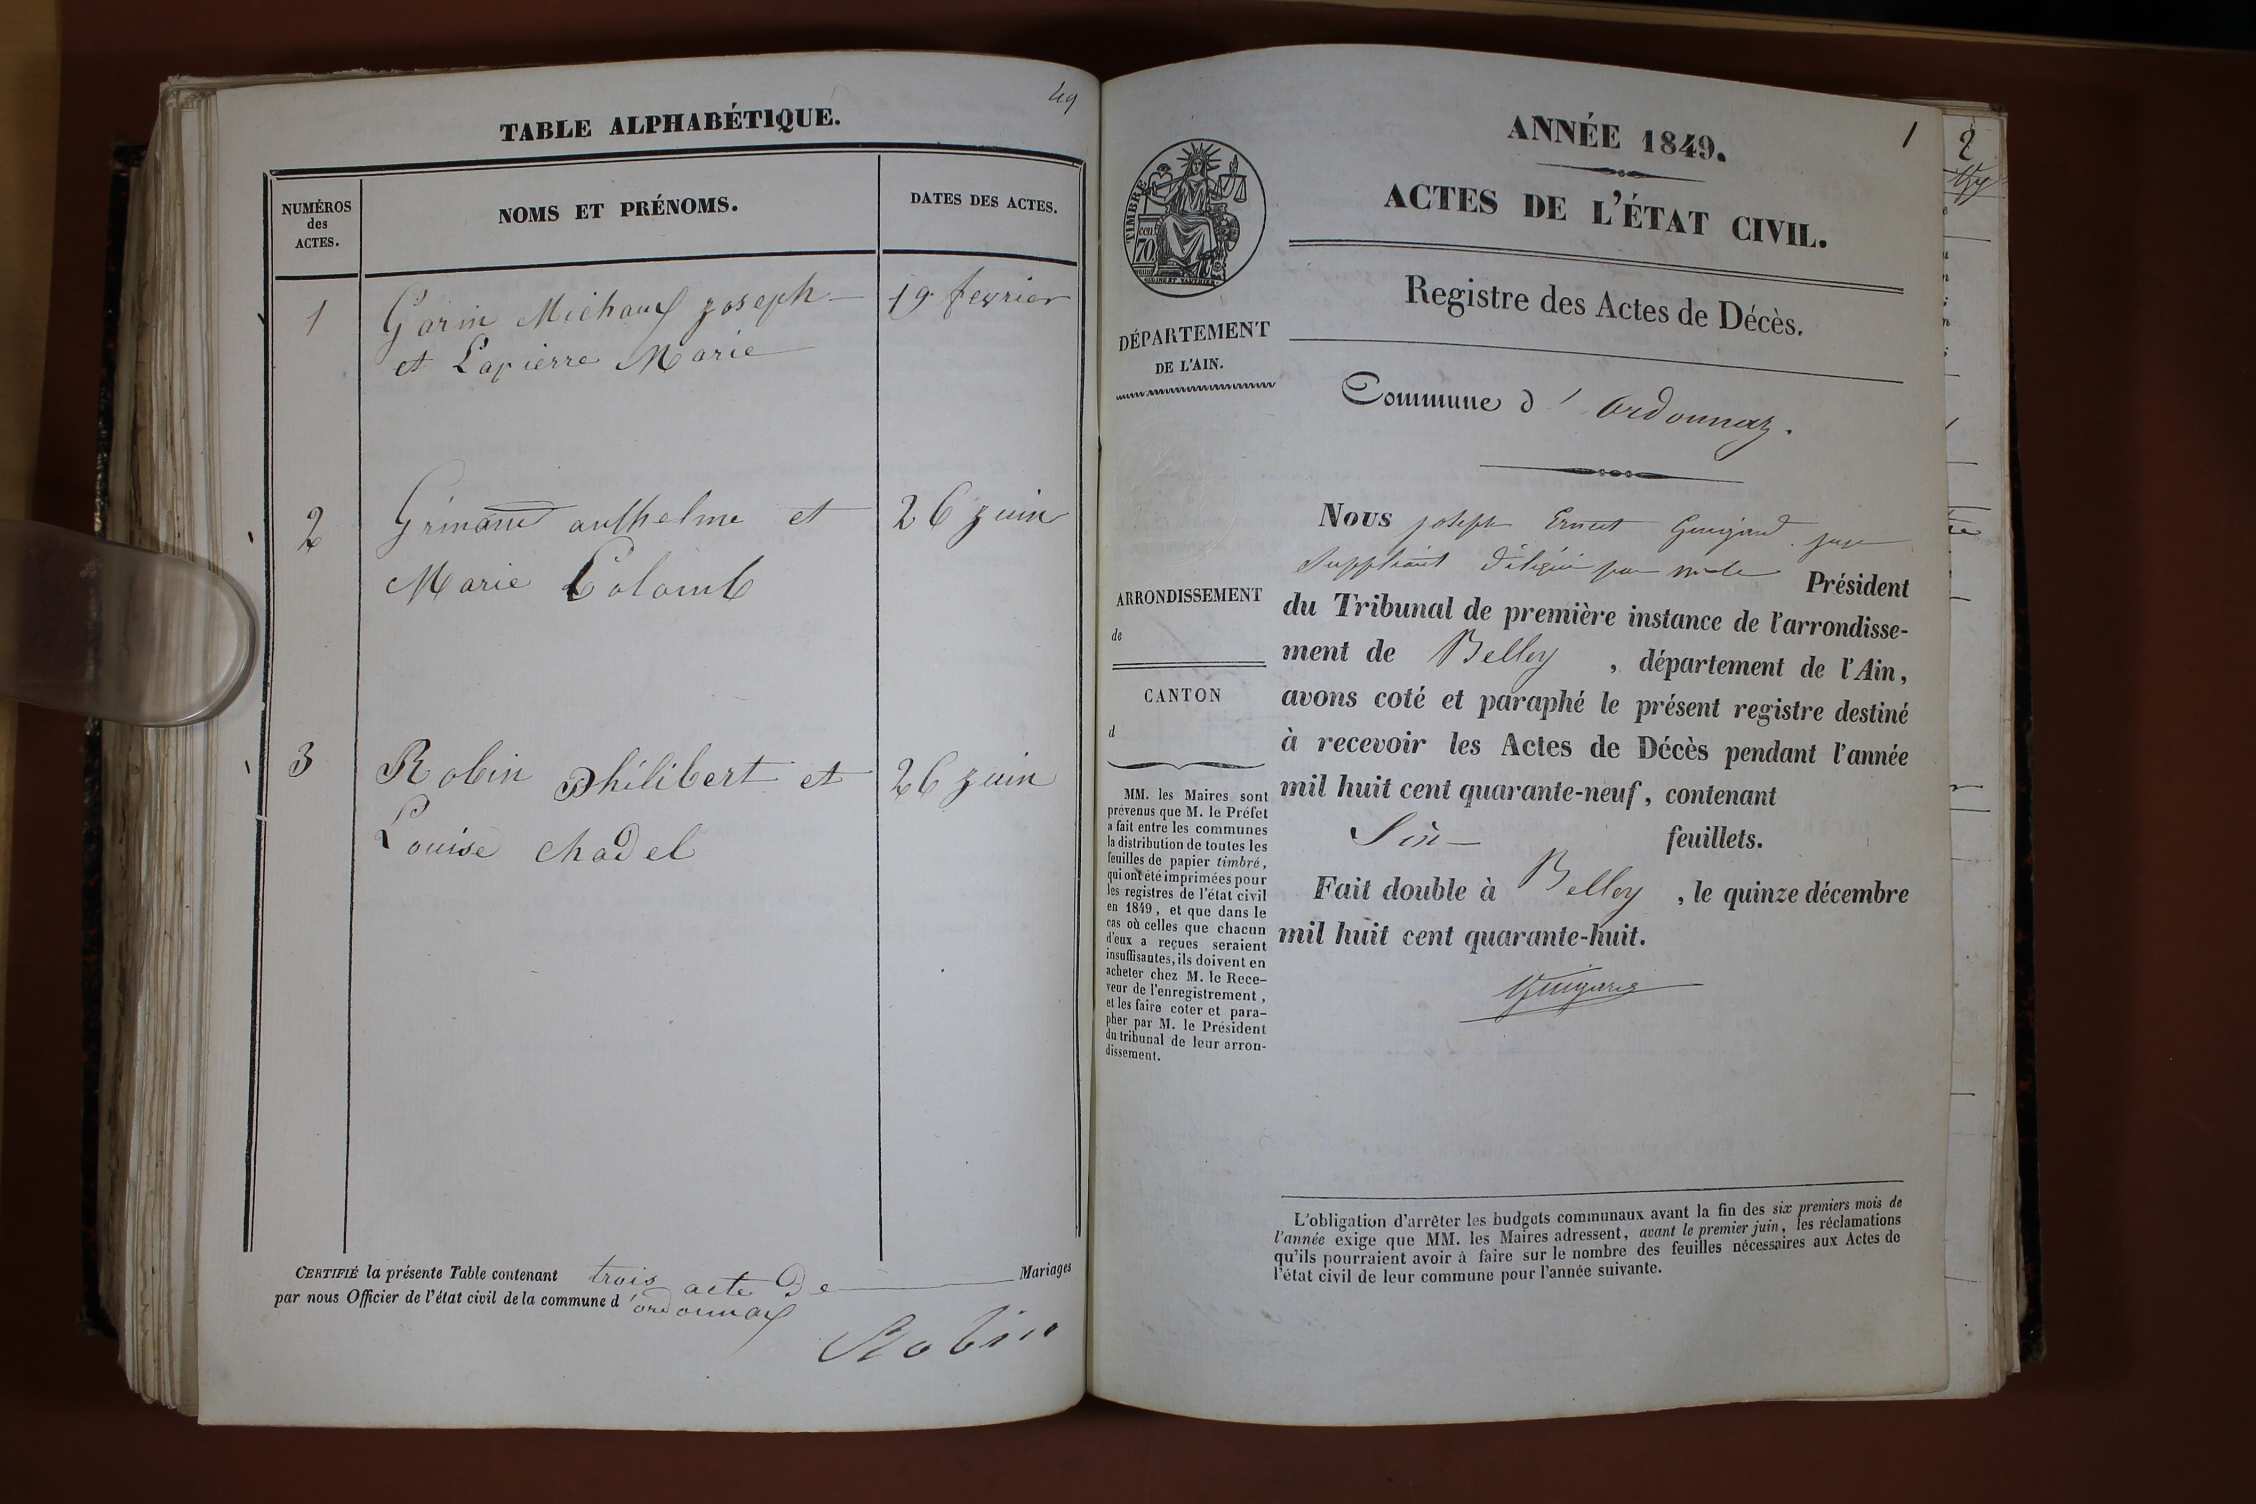 49
TABLE ALPHABÉTIQUE.
NUMÉROS
des
ACTES.
NOMS ET PRÉNOMS.
DATES DES ACTES.
1
Garin Michaux joseph
et Lapierre Marie
19 fevrier
2
anthelme et
Marie Colomb
26 juin
3
Robin Philibert et
Louise chadel
26 juin
CERTIFIÉ la présente Table contenant trois acte De Mariages
par nous Officier de l'état civil de la commune d'ordonnax
Robin
1
ANNÉE 1849.
ACTES DE L'ÉTAT CIVIL.
TIMBRE
70
cen
DÉPARTEMENT
DE L'AIN.
Registre des Actes de Décès.
Commune d'ordonnaz.
ARRONDISSEMENT
de
CANTON
d
MM. les Maires sont
prévenus que M. le Préfet
a fait entre les communes
la distribution de toutes les
feuilles de papier timbré,
qui ont été imprimées pour
les registres de l'état civil
en 1849, et que dans le
cas où celles que chacun
d'eux a reçues seraient
insuffisantes, ils doivent en
acheter chez M. le Rece-
veur de l'enregistrement,
et les faire coter et para-
pher par M. le Président
du tribunal de leur arron-
dissement.
Nous joseph Ernest Guigard juge
Suppléant délégué par Mr le Président
du Tribunal de première instance de l'arrondisse-
ment de Belley, département de l'Ain,
avons coté et paraphé le présent registre destiné
à recevoir les Actes de Décès pendant l'année
mil huit cent quarante-neuf, contenant
feuillets.
Fait double à Belley, le quinze décembre
mil huit cent quarante-huit.
Guigard
L'obligation d'arrêter les budgets communaux avant la fin des six premiers mois de
l'année exige que MM. les Maires adressent, avant le premier juin, les réclamations
qu'ils pourraient avoir à faire sur le nombre des feuilles nécessaires aux Actes de
l'état civil de leur commune pour l'année suivante.
2